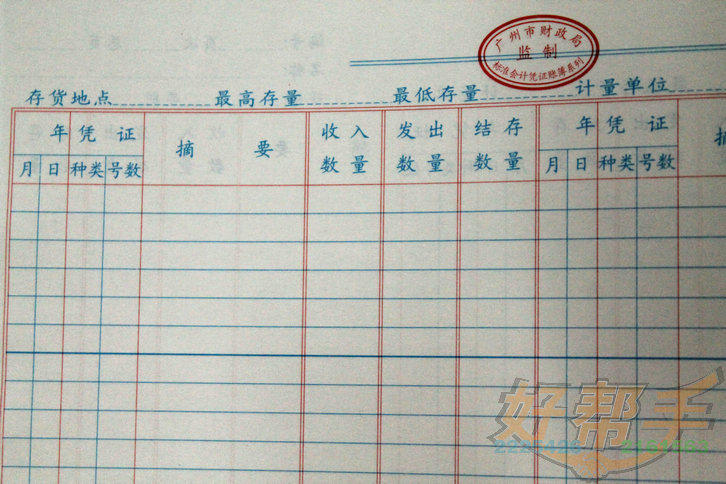 广州市财政局
监制
标准会计凭证账簿系列
存货地点 最高存量 最低存量 计量单位
年 凭证 摘要 收入数量 发出数量 结存数量 年 凭证 摘
月 日 种类 号数 月 日 种类 号数
好帮手